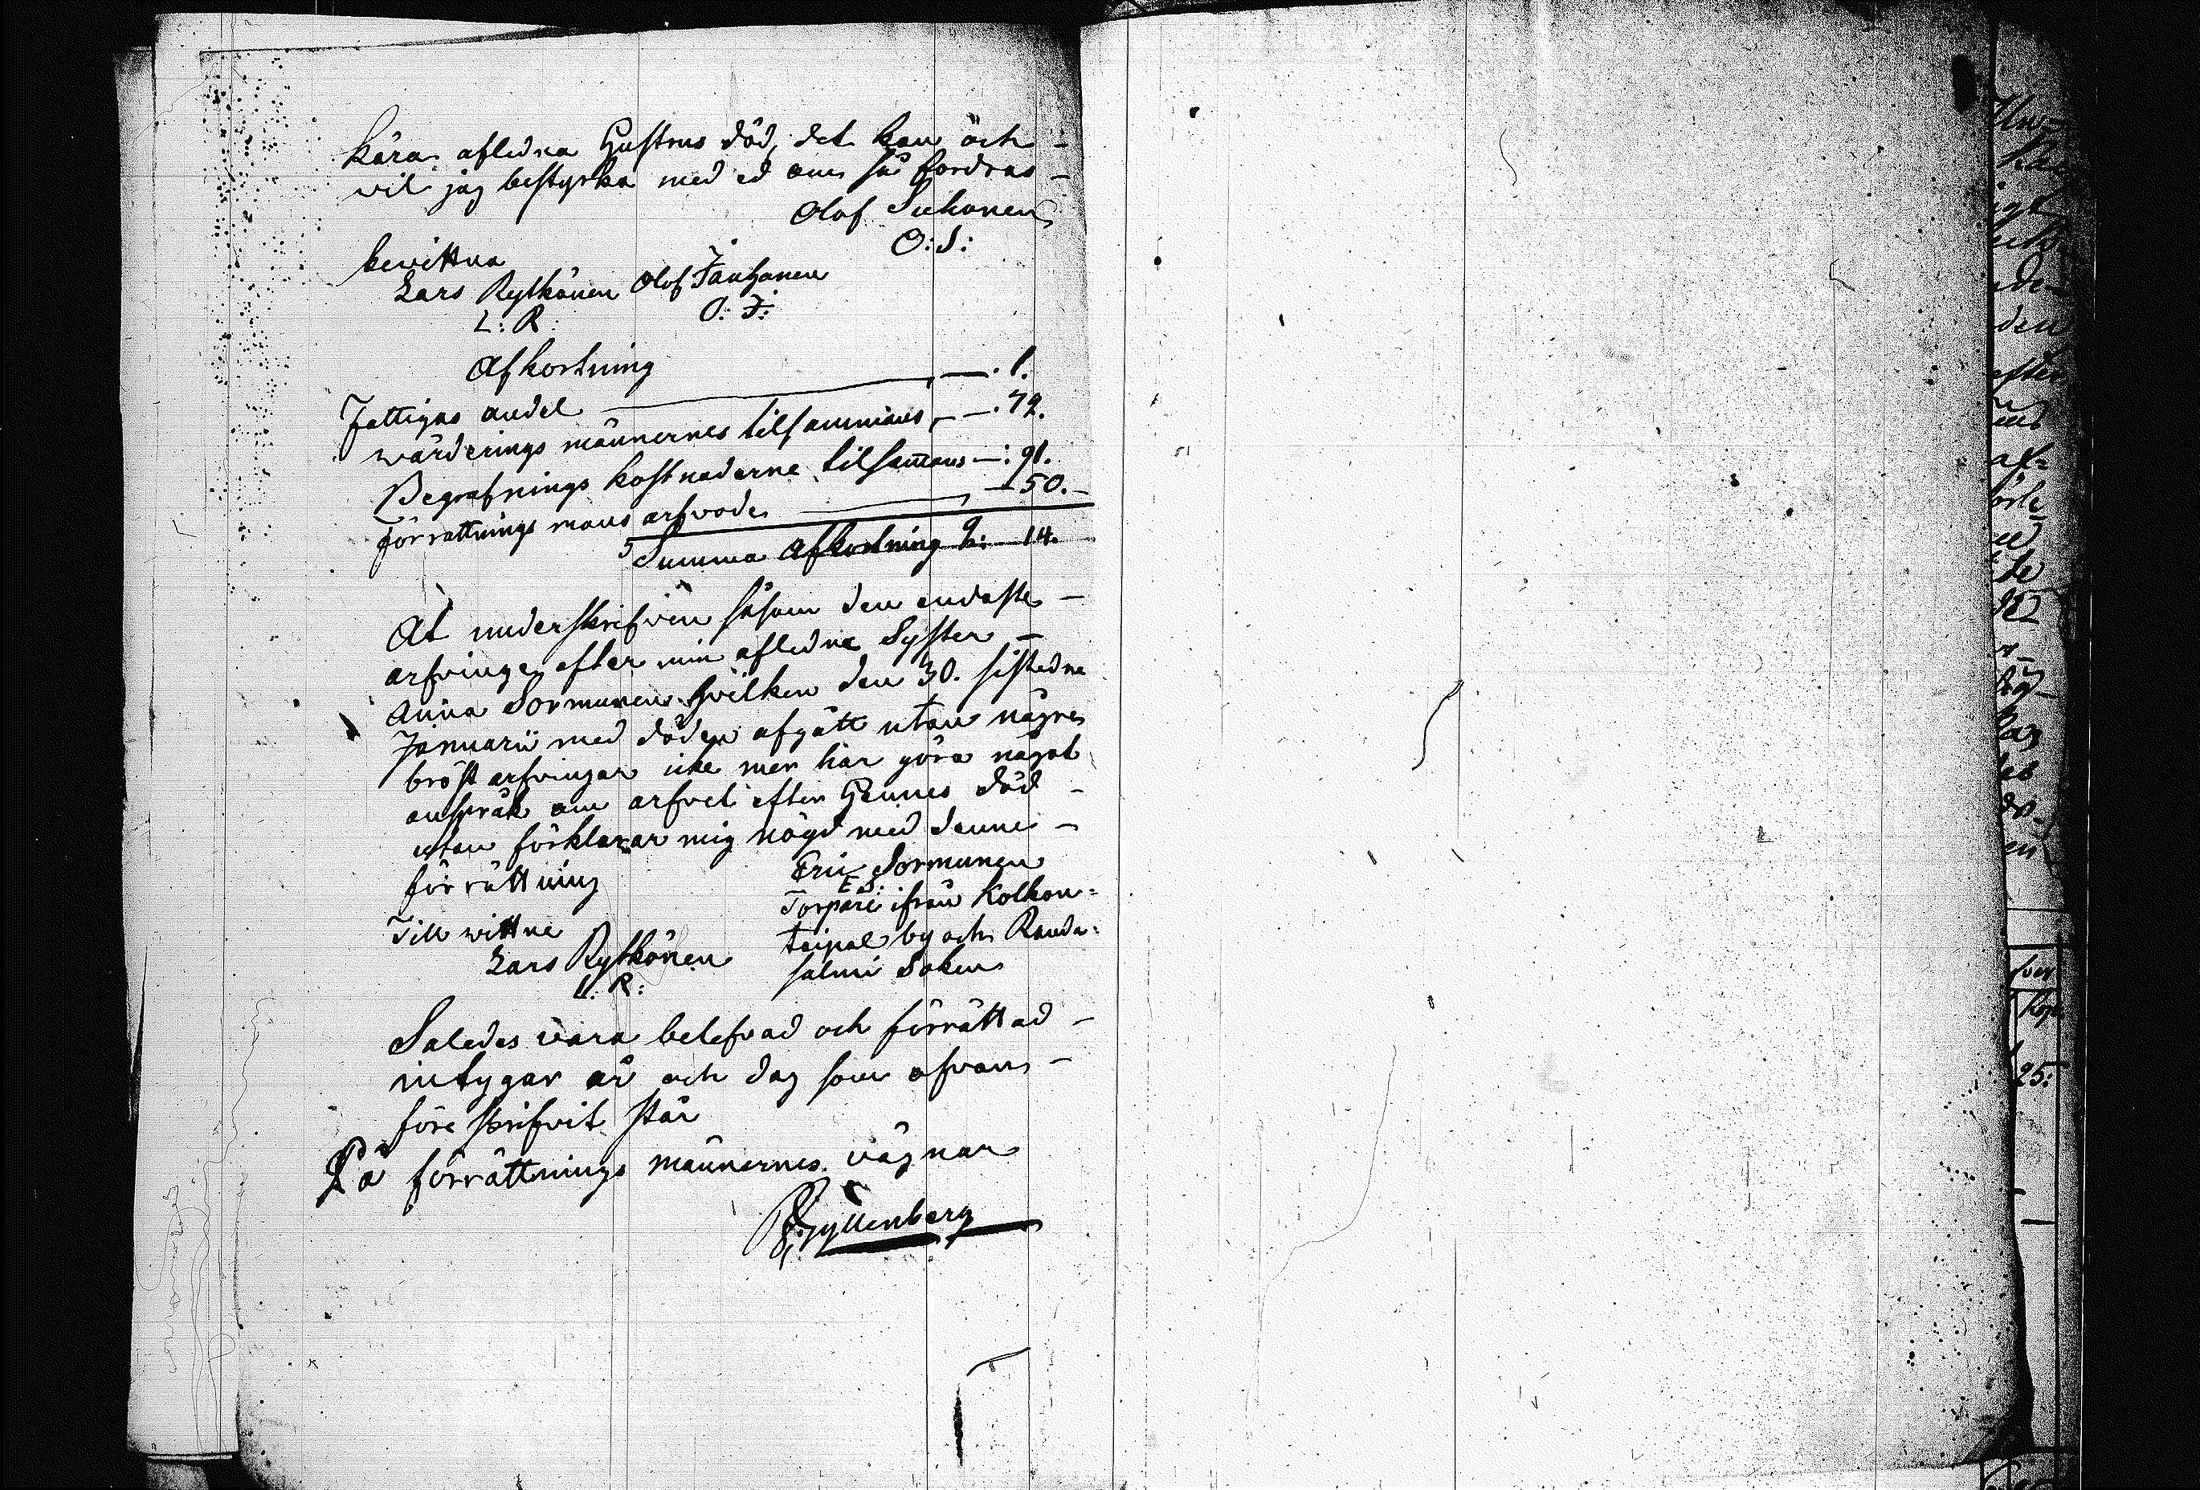 kära afledna Hustrus död, det kan och
vil jag bestyrka med ed om så fordras
Olof Suhonen
O: S:
bevittna
Lars Rytkönen Olof Jauhanen
L: R: O: J:
Afkortning
Fattigas andel — . 1.
wärderings männernes tilsammans — . 72.
Begrafnings kostnaderne tilsamans — : 91.
förrättnings mans arfvode — 50. —
Summa Afkortning 14.
At underskrifven såsom den endaste
arfvinge efter min afledne Syster
Anna Sormunen hvilken den 30. sistledne
Januarii med döden afgått utan några
bröst arfvingar icke mer har göra något
anspråk om arfvet efter Hennes död
utan förklarar mig nögd med denne
förrättning
Eric Sormunen
E: S:
Torpare ifrån Kolkon=
taipal by och Randa=
salmi Soken
Till wittne
Lars Rytkönen
L: R:
Saledes vara belefvad och förrättad
intygar år och dag som ofvan
före skrifvit står
På förrättnings männernes vägnar
Gyllenberg
den
efter
af=
25: